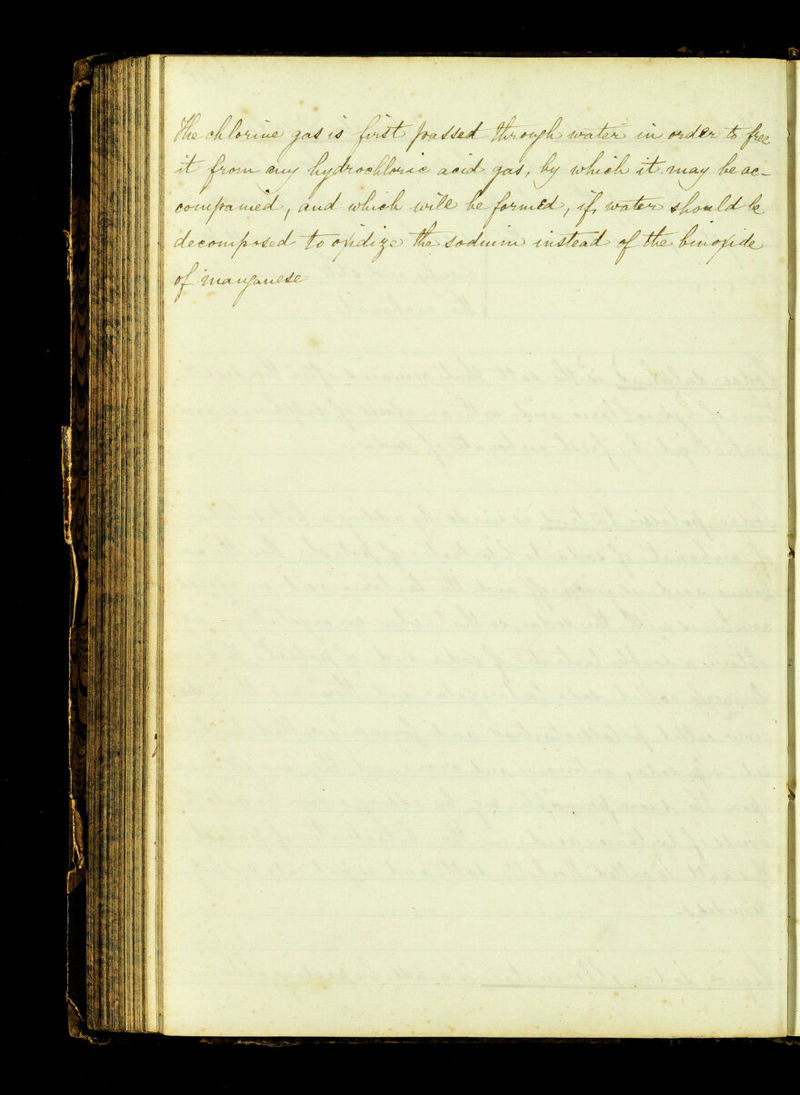 The chlorine gas is first passed through water in order to free
it from any hydrochloric acid gas, by which it may be ac-
companied, and which will be formed, if water should be
decomposed to oxidize the sodium instead of the binoxide
of manganese